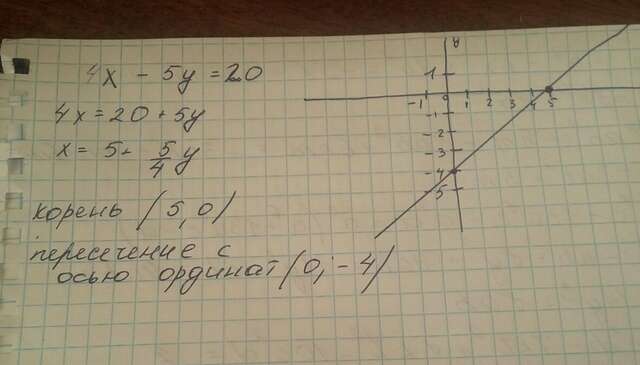 4x - 5y = 20
4x = 20 + 5y
x = 5 + 5/4 y
корень (5,0)
пересечение с
осью ординат (0; -4)
y
1
-1 0 1 2 3 4 5
-1
-2
-3
-4
5